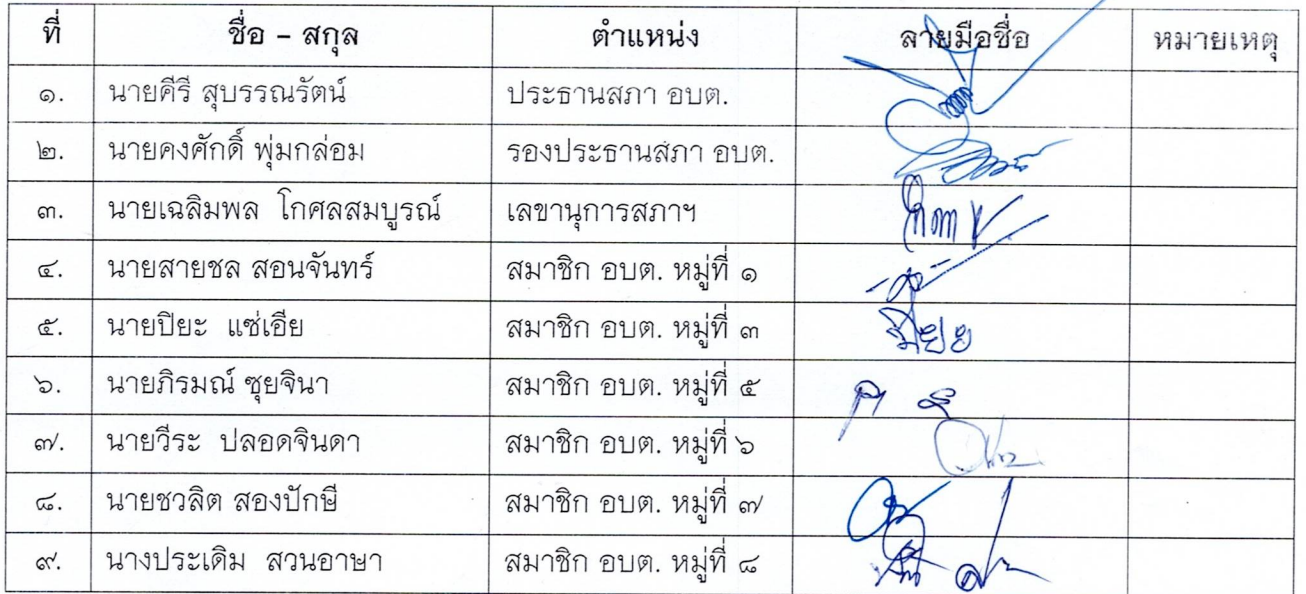 ที่ ชื่อ – สกุล ตำแหน่ง ลายมือชื่อ หมายเหตุ
๑. นายคีรี สุบรรณรัตน์ ประธานสภา อบต.
๒. นายคงศักดิ์ พุ่มกล่อม รองประธานสภา อบต.
๓. นายเฉลิมพล โกศลสมบูรณ์ เลขานุการสภาฯ
๔. นายสายชล สอนจันทร์ สมาชิก อบต. หมู่ที่ ๑
๕. นายปิยะ แซ่เอีย สมาชิก อบต. หมู่ที่ ๓
๖. นายภิรมณ์ ซุยจินา สมาชิก อบต. หมู่ที่ ๕
๗. นายวีระ ปลอดจินดา สมาชิก อบต. หมู่ที่ ๖
๘. นายชวลิต สองปักษี สมาชิก อบต. หมู่ที่ ๗
๙. นางประเดิม สวนอาษา สมาชิก อบต. หมู่ที่ ๘